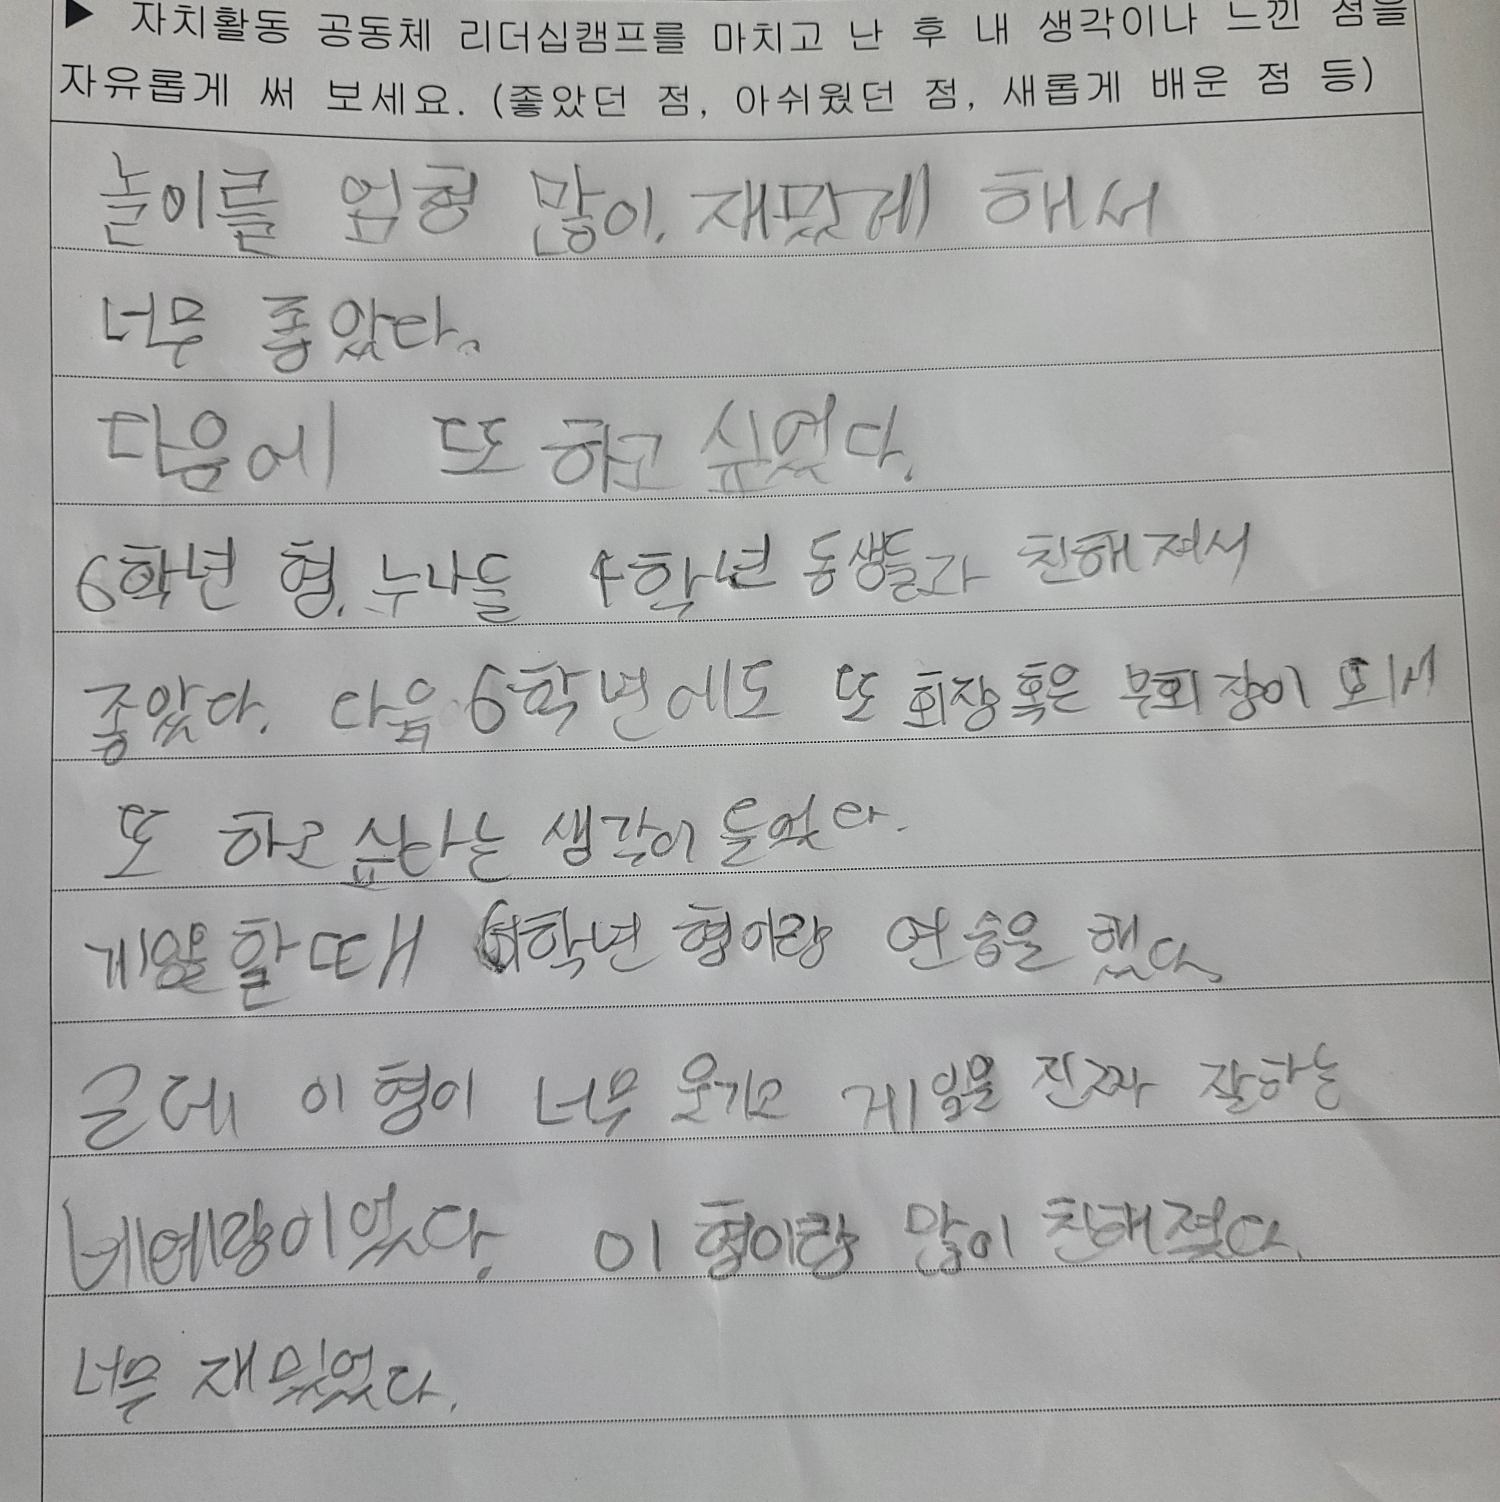 ▶ 자치활동 공동체 리더십캠프를 마치고 난 후 내 생각이나 느낀 점을
자유롭게 써 보세요. (좋았던 점, 아쉬웠던 점, 새롭게 배운 점 등)
놀이를 엄청 많이. 재밌게 해서
너무 좋았다.
다음에 또 하고 싶었다.
6학년 형, 누나들 4학년 동생들과 친해져서
좋았다. 다음 6학년에도 또 회장 혹은 부회장이 되서
또 하고 싶다는 생각이 들었다.
게임을 할 때 6학년 형이랑 연습을 했다.
근데 이 형이 너무 웃기고 게임을 진짜 잘하는
이 형이랑 많이 친해졌다.
너무 재밌었다.